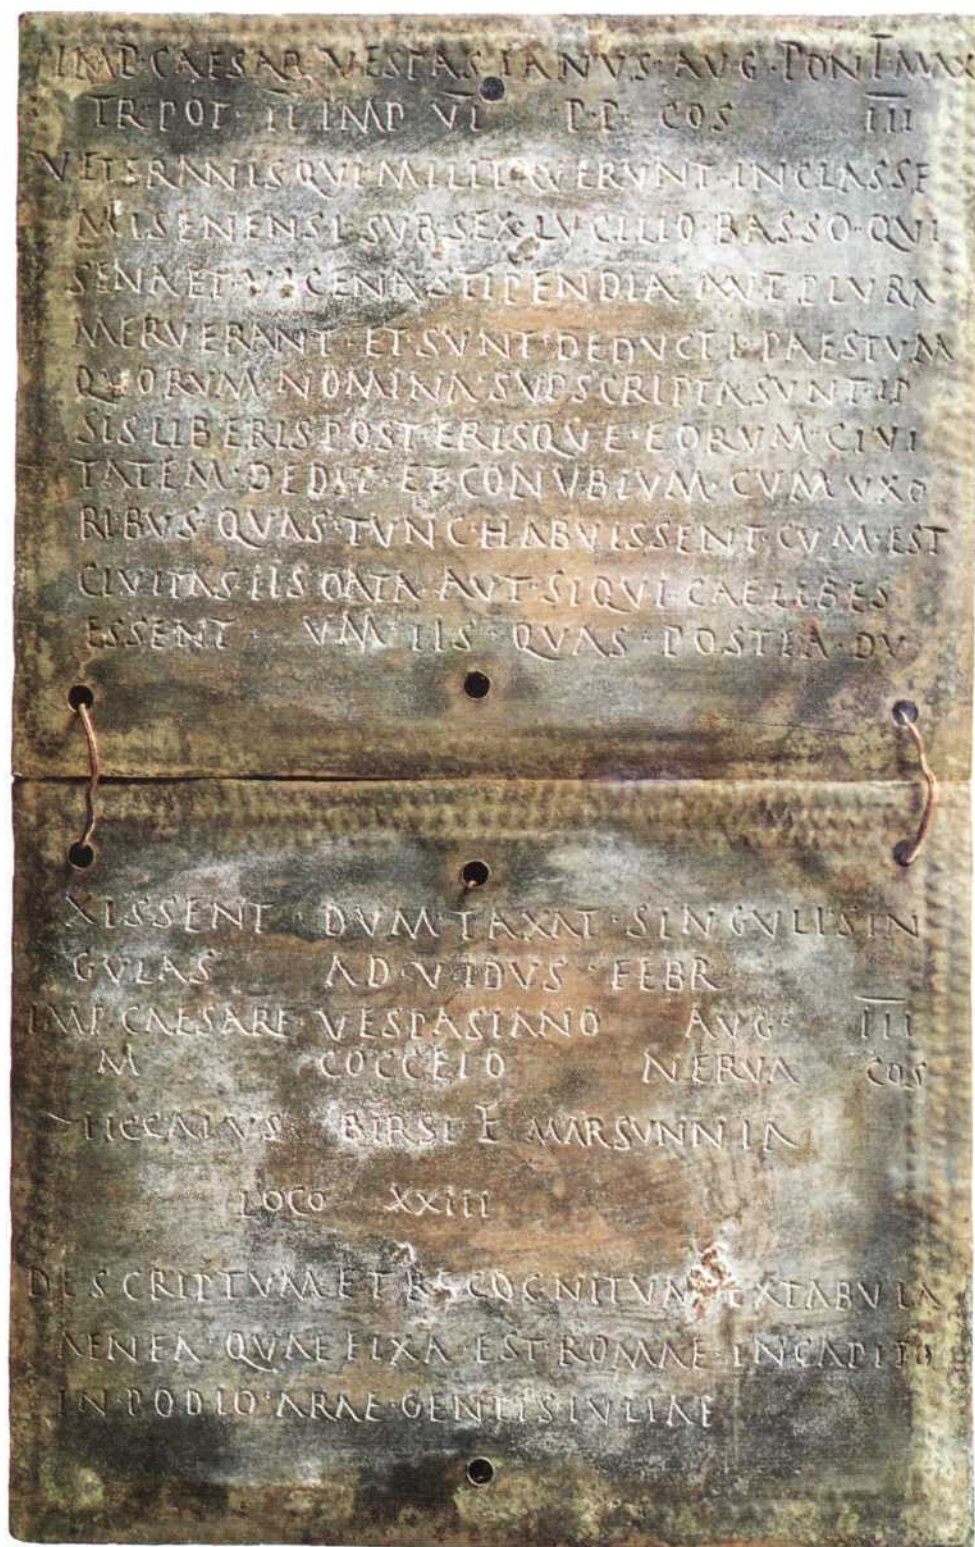 IMP·CAESAR·VESPASIANVS·AVG·PONT·MAX
TR·POT·II·IMP VI P·P· COS III
VETERANIS QVI MILITAVERVNT·IN CLASSE
MISENENSI·SVB·SEX·LVCILIO·BASSO·QVI
SENA ET VICENA STIPENDIA AVT·PLVRA
MERVERANT·ET SVNT DEDVCTI·PAESTVM
QVORVM·NOMINA SVPSCRIPTA SVNT·IP
SIS·LIBERIS POSTERISQVE·EORVM·CIVI
TATEM·DEDIT·ET CONVBIVM·CVM VXO
RIBVS·QVAS·TVNC·HABVISSENT·CVM·EST
CIVITAS·IIS DATA·AVT·SIQVI·CAELIBES
ESSENT· VM IIS·QVAS·POSTEA·DV
XISSENT·DVM·TAXAT·SINGVLI SIN
GVLAS AD·V·IDVS·FEBR
IMP·CAESARE·VESPASIANO AVG· III
M COCCEIO NERVA COS
BIRSI F MARSVNNIA
LOCO XXIII
DESCRIPTVM ET RECOGNITVM EX TABVLA
AENEA QVAE FIXA EST·ROMAE·IN CAPITO
IN·PODIO·ARAE·GENTIS IVLIAE